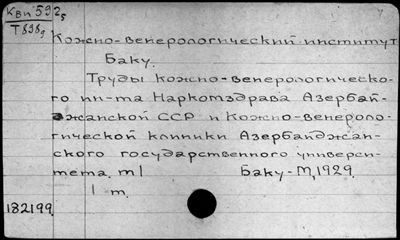 Квп 592₅
Т898₉
Кожно-венерологический институт
Баку.
Труды кожно-венерологическо-
го ин-та Наркомздрава Азербай-
джанской ССР и Кожно-венероло-
гической клиники Азербайджан-
ского государственного универси-
тета. т1 Баку-М, 1929.
1 т.
182199